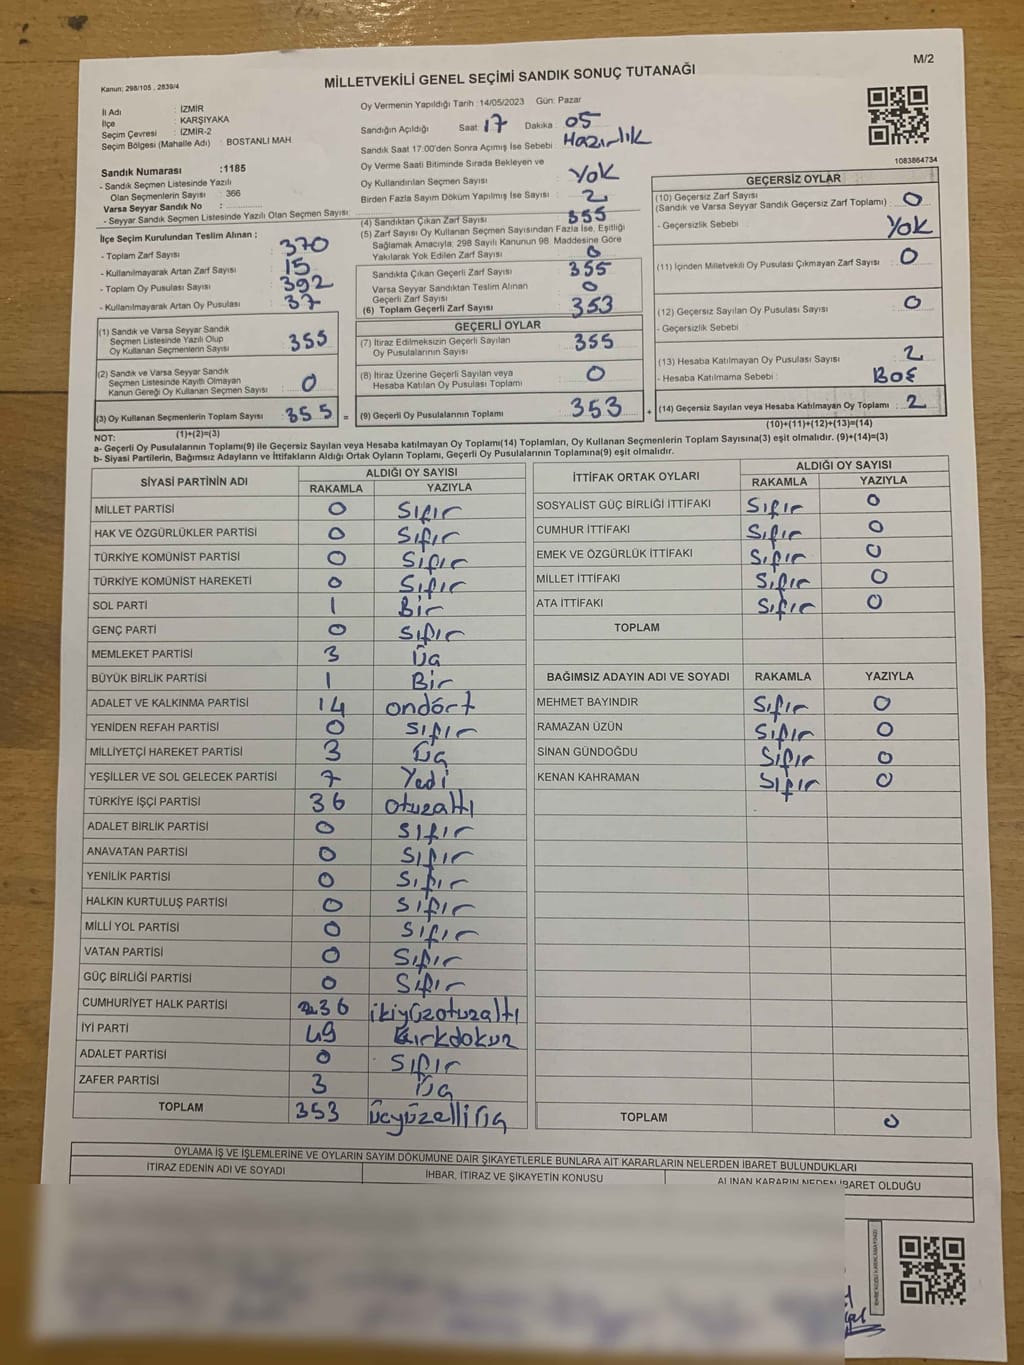 M/2
Kanun; 298/105 , 2839/4
MİLLETVEKİLİ GENEL SEÇİMİ SANDIK SONUÇ TUTANAĞI
İl Adı : İZMİR
İlçe : KARŞIYAKA
Seçim Çevresi : İZMİR-2
Seçim Bölgesi (Mahalle Adı) : BOSTANLI MAH
Sandık Numarası :1185
- Sandık Seçmen Listesinde Yazılı
Olan Seçmenlerin Sayısı : 366
Varsa Seyyar Sandık No :
- Seyyar Sandık Seçmen Listesinde Yazılı Olan Seçmen Sayısı:
İlçe Seçim Kurulundan Teslim Alınan ;
- Toplam Zarf Sayısı 370
- Kullanılmayarak Artan Zarf Sayısı 15
- Toplam Oy Pusulası Sayısı 392
- Kullanılmayarak Artan Oy Pusulası 37
(1) Sandık ve Varsa Seyyar Sandık
Seçmen Listesinde Yazılı Olup
Oy Kullanan Seçmenlerin Sayısı 355
(2) Sandık ve Varsa Seyyar Sandık
Seçmen Listesinde Kayıtlı Olmayan
Kanun Gereği Oy Kullanan Seçmen Sayısı 0
(3) Oy Kullanan Seçmenlerin Toplam Sayısı 355 =
(1)+(2)=(3)
Oy Vermenin Yapıldığı Tarih :14/05/2023 Gün: Pazar
Sandığın Açıldığı Saat 17 Dakika : 05
Sandık Saat 17:00'den Sonra Açımış İse Sebebi : Hazırlık
Oy Verme Saati Bitiminde Sırada Bekleyen ve
Oy Kullandırılan Seçmen Sayısı Yok
Birden Fazla Sayım Döküm Yapılmış İse Sayısı : 2
(4) Sandıktan Çıkan Zarf Sayısı 355
(5) Zarf Sayısı Oy Kullanan Seçmen Sayısından Fazla İse, Eşitliği
Sağlamak Amacıyla, 298 Sayılı Kanunun 98. Maddesine Göre
Yakılarak Yok Edilen Zarf Sayısı 0
Sandıkta Çıkan Geçerli Zarf Sayısı 355
Varsa Seyyar Sandıktan Teslim Alınan
Geçerli Zarf Sayısı 0
(6) Toplam Geçerli Zarf Sayısı 353
GEÇERLİ OYLAR
(7) İtiraz Edilmeksizin Geçerli Sayılan
Oy Pusulalarının Sayısı 355
(8) İtiraz Üzerine Geçerli Sayılan veya
Hesaba Katılan Oy Pusulası Toplamı 0
(9) Geçerli Oy Pusulalarının Toplamı 353 +
1083864734
GEÇERSİZ OYLAR
(10) Geçersiz Zarf Sayısı
(Sandık ve Varsa Seyyar Sandık Geçersiz Zarf Toplamı) : 0
- Geçersizlik Sebebi Yok
(11) İçinden Milletvekili Oy Pusulası Çıkmayan Zarf Sayısı 0
(12) Geçersiz Sayılan Oy Pusulası Sayısı 0
- Geçersizlik Sebebi
(13) Hesaba Katılmayan Oy Pusulası Sayısı 2
- Hesaba Katılmama Sebebi Boş
(14) Geçersiz Sayılan veya Hesaba Katılmayan Oy Toplamı : 2
(10)+(11)+(12)+(13)=(14)
NOT:
a- Geçerli Oy Pusulalarının Toplamı(9) ile Geçersiz Sayılan veya Hesaba katılmayan Oy Toplamı(14) Toplamları, Oy Kullanan Seçmenlerin Toplam Sayısına(3) eşit olmalıdır. (9)+(14)=(3)
b- Siyasi Partilerin, Bağımsız Adayların ve İttifakların Aldığı Ortak Oyların Toplamı, Geçerli Oy Pusulalarının Toplamına(9) eşit olmalıdır.
SİYASİ PARTİNİN ADI
ALDIĞI OY SAYISI
RAKAMLA YAZIYLA
MİLLET PARTİSİ 0 Sıfır
HAK VE ÖZGÜRLÜKLER PARTİSİ 0 Sıfır
TÜRKİYE KOMÜNİST PARTİSİ 0 Sıfır
TÜRKİYE KOMÜNİST HAREKETİ 0 Sıfır
SOL PARTİ 1 Bir
GENÇ PARTİ 0 Sıfır
MEMLEKET PARTİSİ 3 Üç
BÜYÜK BİRLİK PARTİSİ 1 Bir
ADALET VE KALKINMA PARTİSİ 14 ondört
YENİDEN REFAH PARTİSİ 0 Sıfır
MİLLİYETÇİ HAREKET PARTİSİ 3 Üç
YEŞİLLER VE SOL GELECEK PARTİSİ 7 Yedi
TÜRKİYE İŞÇİ PARTİSİ 36 otuzaltı
ADALET BİRLİK PARTİSİ 0 Sıfır
ANAVATAN PARTİSİ 0 Sıfır
YENİLİK PARTİSİ 0 Sıfır
HALKIN KURTULUŞ PARTİSİ 0 Sıfır
MİLLİ YOL PARTİSİ 0 Sıfır
VATAN PARTİSİ 0 Sıfır
GÜÇ BİRLİĞİ PARTİSİ 0 Sıfır
CUMHURİYET HALK PARTİSİ 236 ikiyüzotuzaltı
İYİ PARTİ 49 kırkdokuz
ADALET PARTİSİ 0 Sıfır
ZAFER PARTİSİ 3 Üç
TOPLAM 353 üçyüzelliüç
İTTİFAK ORTAK OYLARI
ALDIĞI OY SAYISI
RAKAMLA YAZIYLA
SOSYALİST GÜÇ BİRLİĞİ İTTİFAKI Sıfır 0
CUMHUR İTTİFAKI Sıfır 0
EMEK VE ÖZGÜRLÜK İTTİFAKI Sıfır 0
MİLLET İTTİFAKI Sıfır 0
ATA İTTİFAKI Sıfır 0
TOPLAM
BAĞIMSIZ ADAYIN ADI VE SOYADI RAKAMLA YAZIYLA
MEHMET BAYINDIR Sıfır 0
RAMAZAN ÜZÜN Sıfır 0
SİNAN GÜNDOĞDU Sıfır 0
KENAN KAHRAMAN Sıfır 0
TOPLAM 0
OYLAMA İŞ VE İŞLEMLERİNE VE OYLARIN SAYIM DÖKÜMÜNE DAİR ŞİKAYETLERLE BUNLARA AİT KARARLARIN NELERDEN İBARET BULUNDUKLARI
İTİRAZ EDENİN ADI VE SOYADI
İHBAR, İTİRAZ VE ŞİKAYETİN KONUSU
ALINAN KARARIN NEDEN İBARET OLDUĞU